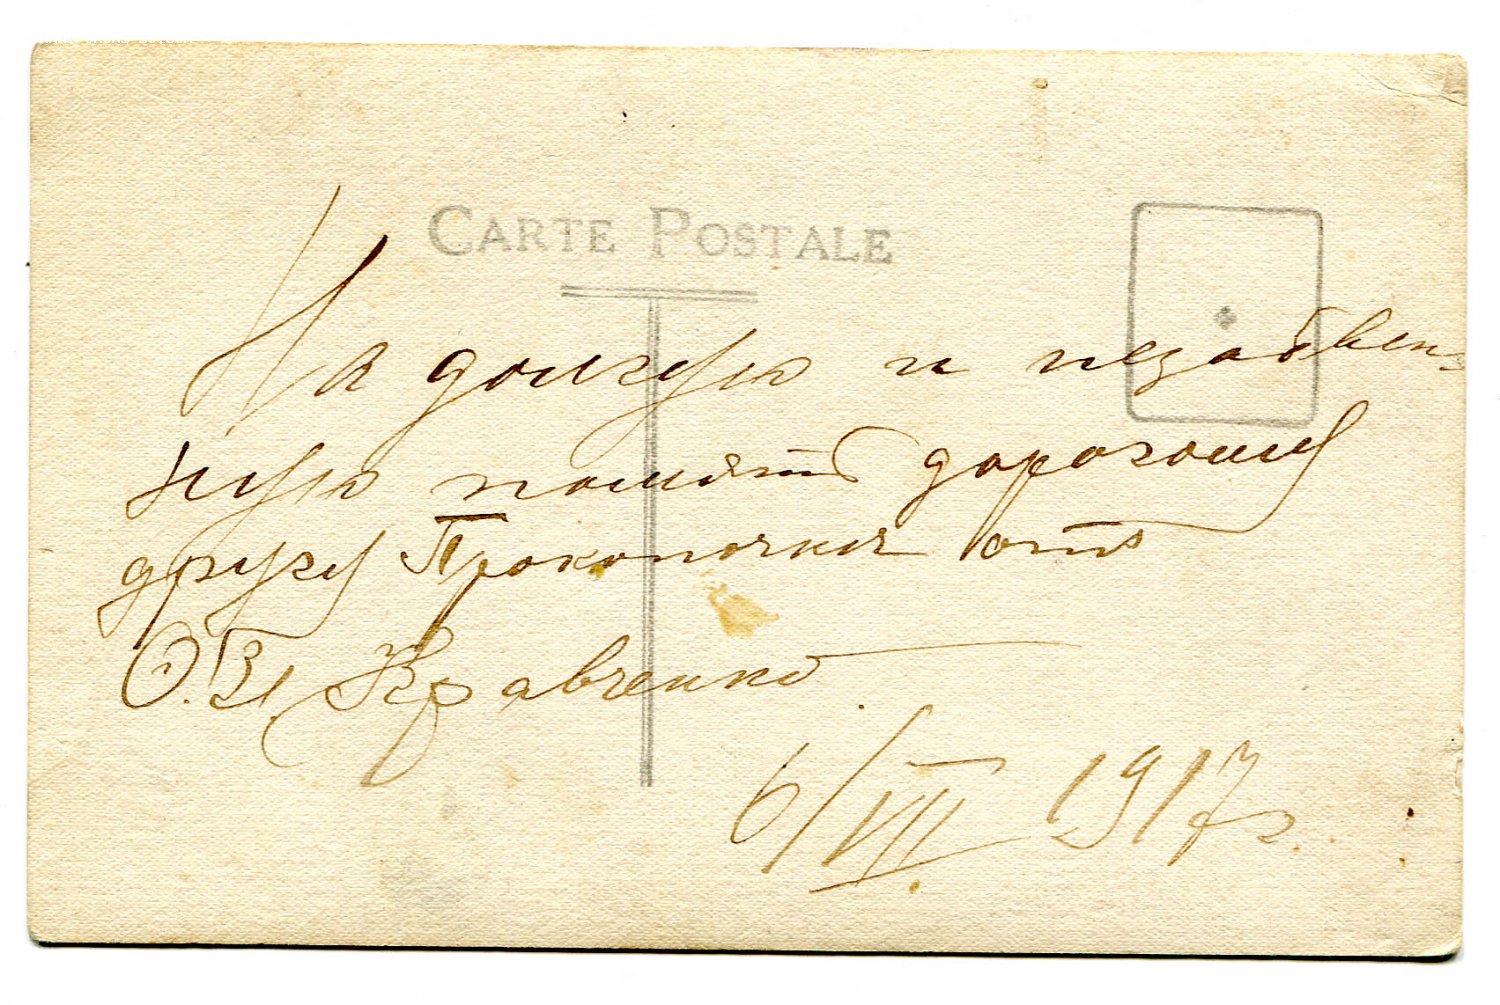 CARTE POSTALE
На долгую и незабвен-
ную память дорогому
другу Прокопочкѣ отъ
Кравченко
6/VII 1917 г.